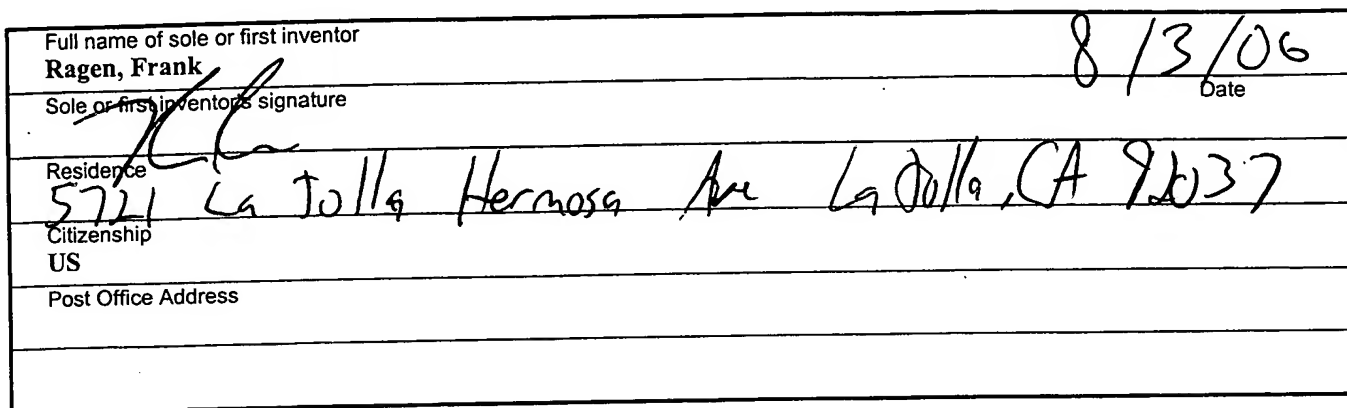 Full name of sole or first inventor
Ragen, Frank
8/3/06
Date
Sole or first inventor's signature
Residence
5721 La Jolla Hermosa Ave La Jolla, CA 92037
Citizenship
US
Post Office Address